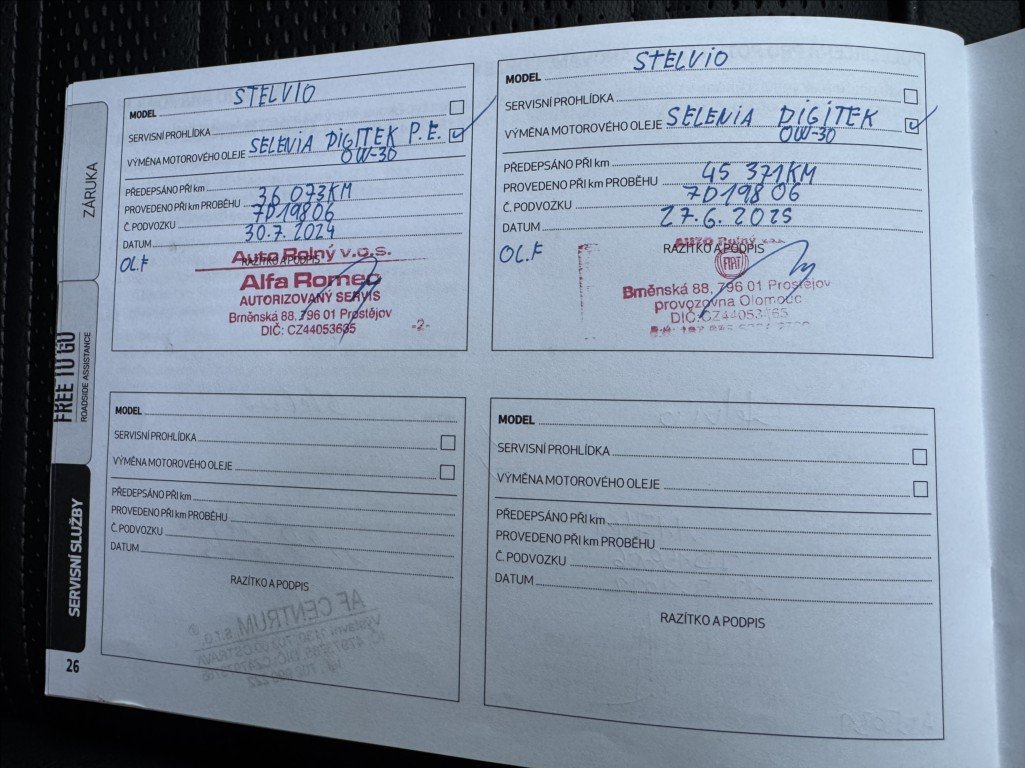 ZÁRUKA
FREE TO GO
ROADSIDE ASSISTANCE
SERVISNÍ SLUŽBY
26
MODEL STELVIO
SERVISNÍ PROHLÍDKA
VÝMĚNA MOTOROVÉHO OLEJE SELENIA DIGITEK P.E.
0W-30
PŘEDEPSÁNO PŘI km
PROVEDENO PŘI km PROBĚHU 36 073KM
Č. PODVOZKU 7D19806
DATUM 30.7.2024
OL.F
RAZÍTKO A PODPIS
Auto Rolný v.o.s.
Alfa Romeo
AUTORIZOVANÝ SERVIS
Brněnská 88, 796 01 Prostějov
DIČ: CZ44053665
-2-
MODEL STELVIO
SERVISNÍ PROHLÍDKA
VÝMĚNA MOTOROVÉHO OLEJE SELENIA DIGITEK
0W-30
PŘEDEPSÁNO PŘI km
PROVEDENO PŘI km PROBĚHU 45 371KM
Č. PODVOZKU 7D19806
DATUM 27.6.2025
OL.F
RAZÍTKO A PODPIS
Auto Rolný
FIAT
Brněnská 88, 796 01 Prostějov
provozovna Olomouc
MODEL
SERVISNÍ PROHLÍDKA
VÝMĚNA MOTOROVÉHO OLEJE
PŘEDEPSÁNO PŘI km
PROVEDENO PŘI km PROBĚHU
Č. PODVOZKU
DATUM
RAZÍTKO A PODPIS
MODEL
SERVISNÍ PROHLÍDKA
VÝMĚNA MOTOROVÉHO OLEJE
PŘEDEPSÁNO PŘI km
PROVEDENO PŘI km PROBĚHU
Č. PODVOZKU
DATUM
RAZÍTKO A PODPIS